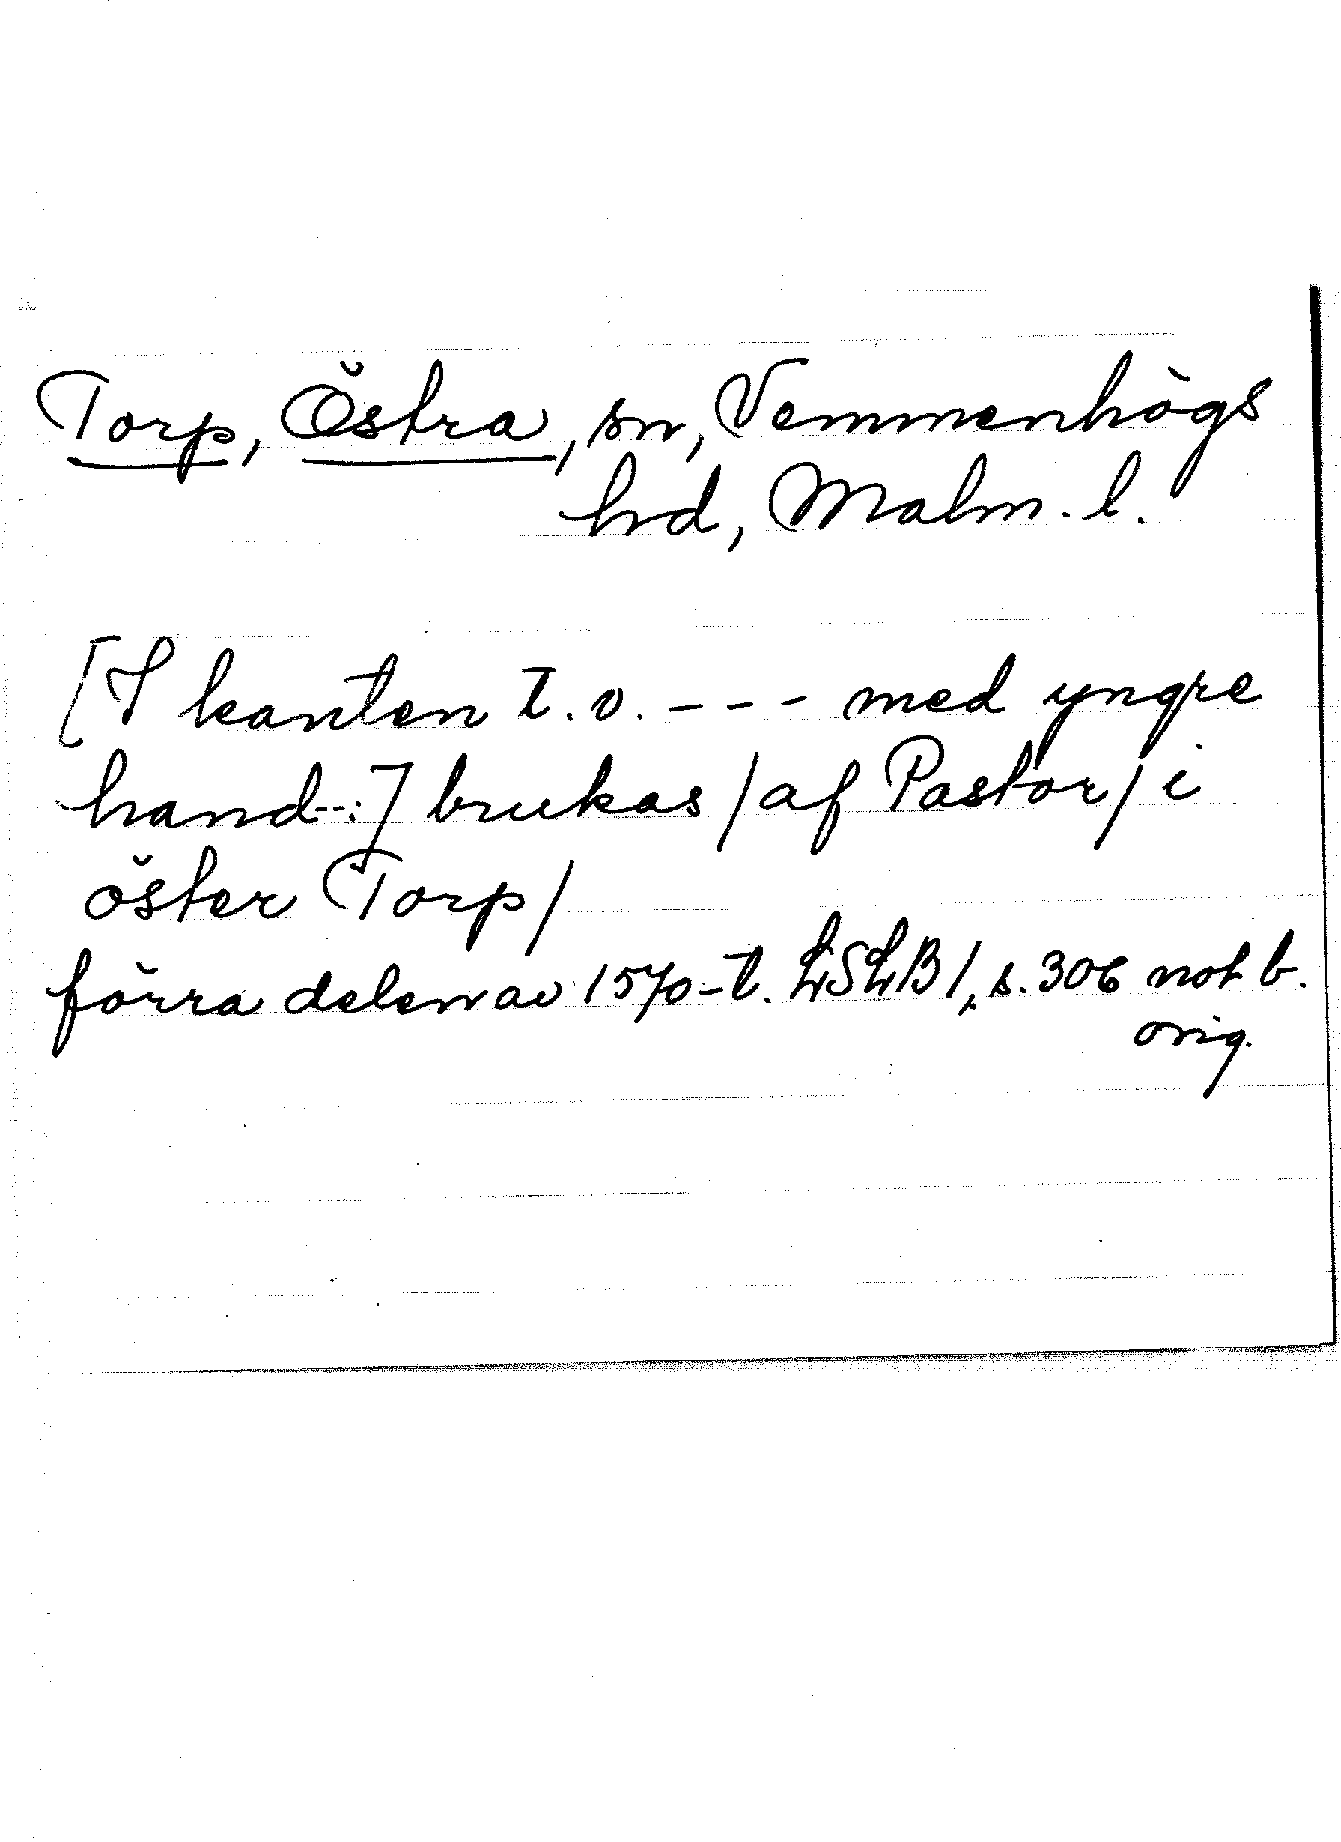 Torp, Östra, sn, Vemmenhögs
hd, Malm. l.
[I kanten t.v. --- med yngre
hand--:] brukas /af Pastor/ i
öster Torp/
förra delen av 1570-t. LSLB 1, s. 306 not b.
orig.